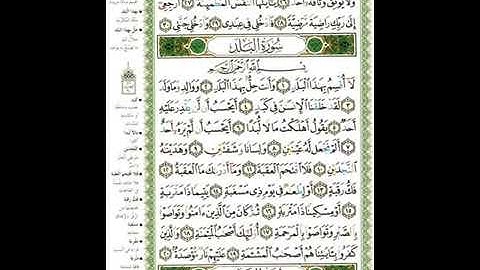 وَلَا يُوثِقُ وَثَاقَهُۥٓ أَحَدٌ ٢٦ يَٰٓأَيَّتُهَا ٱلنَّفْسُ ٱلْمُطْمَئِنَّةُ ٢٧ ٱرْجِعِىٓ
إِلَىٰ رَبِّكِ رَاضِيَةً مَّرْضِيَّةً ٢٨ فَٱدْخُلِى فِى عِبَٰدِى ٢٩ وَٱدْخُلِى جَنَّتِى ٣٠
سُورَةُ الْبَلَدِ
بِسْمِ ٱللَّهِ ٱلرَّحْمَٰنِ ٱلرَّحِيمِ
لَآ أُقْسِمُ بِهَٰذَا ٱلْبَلَدِ ١ وَأَنتَ حِلٌّۢ بِهَٰذَا ٱلْبَلَدِ ٢ وَوَالِدٍ وَمَا وَلَدَ
٣ لَقَدْ خَلَقْنَا ٱلْإِنسَٰنَ فِى كَبَدٍ ٤ أَيَحْسَبُ أَن لَّن يَقْدِرَ عَلَيْهِ
أَحَدٌ ٥ يَقُولُ أَهْلَكْتُ مَالًا لُّبَدًا ٦ أَيَحْسَبُ أَن لَّمْ يَرَهُۥٓ أَحَدٌ
٧ أَلَمْ نَجْعَل لَّهُۥ عَيْنَيْنِ ٨ وَلِسَانًا وَشَفَتَيْنِ ٩ وَهَدَيْنَٰهُ
ٱلنَّجْدَيْنِ ١٠ فَلَا ٱقْتَحَمَ ٱلْعَقَبَةَ ١١ وَمَآ أَدْرَىٰكَ مَا ٱلْعَقَبَةُ ١٢
فَكُّ رَقَبَةٍ ١٣ أَوْ إِطْعَٰمٌ فِى يَوْمٍ ذِى مَسْغَبَةٍ ١٤ يَتِيمًا ذَا مَقْرَبَةٍ
١٥ أَوْ مِسْكِينًا ذَا مَتْرَبَةٍ ١٦ ثُمَّ كَانَ مِنَ ٱلَّذِينَ ءَامَنُوا۟ وَتَوَاصَوْا۟
بِٱلصَّبْرِ وَتَوَاصَوْا۟ بِٱلْمَرْحَمَةِ ١٧ أُو۟لَٰٓئِكَ أَصْحَٰبُ ٱلْمَيْمَنَةِ ١٨ وَٱلَّذِينَ
كَفَرُوا۟ بِـَٔايَٰتِنَا هُمْ أَصْحَٰبُ ٱلْمَشْـَٔمَةِ ١٩ عَلَيْهِمْ نَارٌ مُّؤْصَدَةٌۢ ٢٠